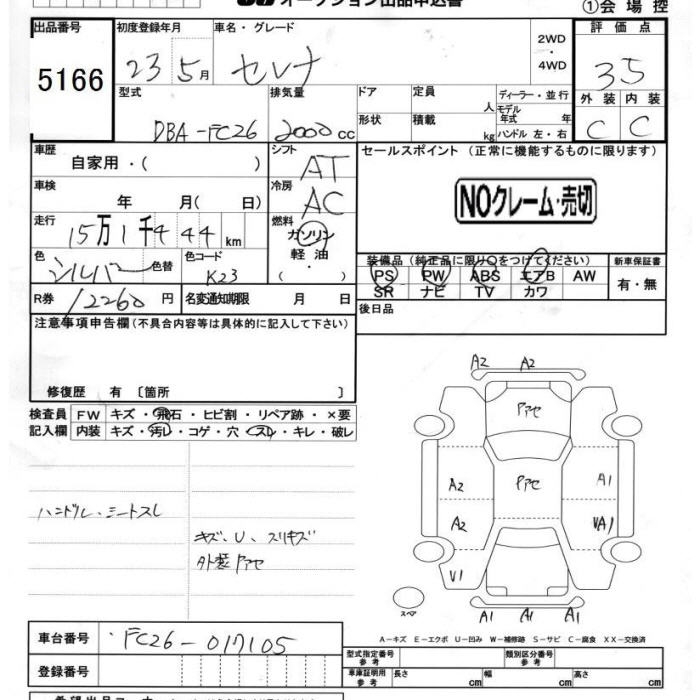 オークション出品申込書 ①会場控
出品番号 初度登録年月 車名・グレード 2WD 評価点
5166 23年5月 セレナ ・ 3.5
4WD
型式 排気量 ドア 定員 ディーラー・並行 外装 内装
人 モデル年式 年
DBA-FC26 2000cc 形状 積載 kg ハンドル 左・右 C C
車歴 シフト セールスポイント (正常に機能するものに限ります)
自家用・( ) AT
車検 冷房 NOクレーム・売切
年 月( 日) AC
走行 燃料
15万1千444km ガソリン
色 色替 色コード 軽油 装備品 (純正品に限り○をつけてください) 新車保証書
シルバー K23 ・( ) PS PW ABS エアB AW 有・無
R券 12260円 名変通知期限 月 日 SR ナビ TV カワ
注意事項申告欄(不具合内容等は具体的に記入して下さい) 後日品
修復歴 有 〔箇所 〕
検査員 FW キズ・飛石・ヒビ割・リペア跡・×要
記入欄 内装 キズ・汚レ・コゲ・穴・スレ・キレ・破レ
A2 A2
アセ
A2 アセ A1
A2
V1
A1 A1 A1
ハンドル、シートスレ
キズ、U、スリキズ
外装アセ
スペア
A−キズ E−エクボ U−凹み W−補修跡 S−サビ C−腐食 XX−交換済
車台番号 FC26-017105
登録番号
型式指定番号 参考 類別区分番号 参考
車庫証明用 参考 長さ cm 幅 cm 高さ cm